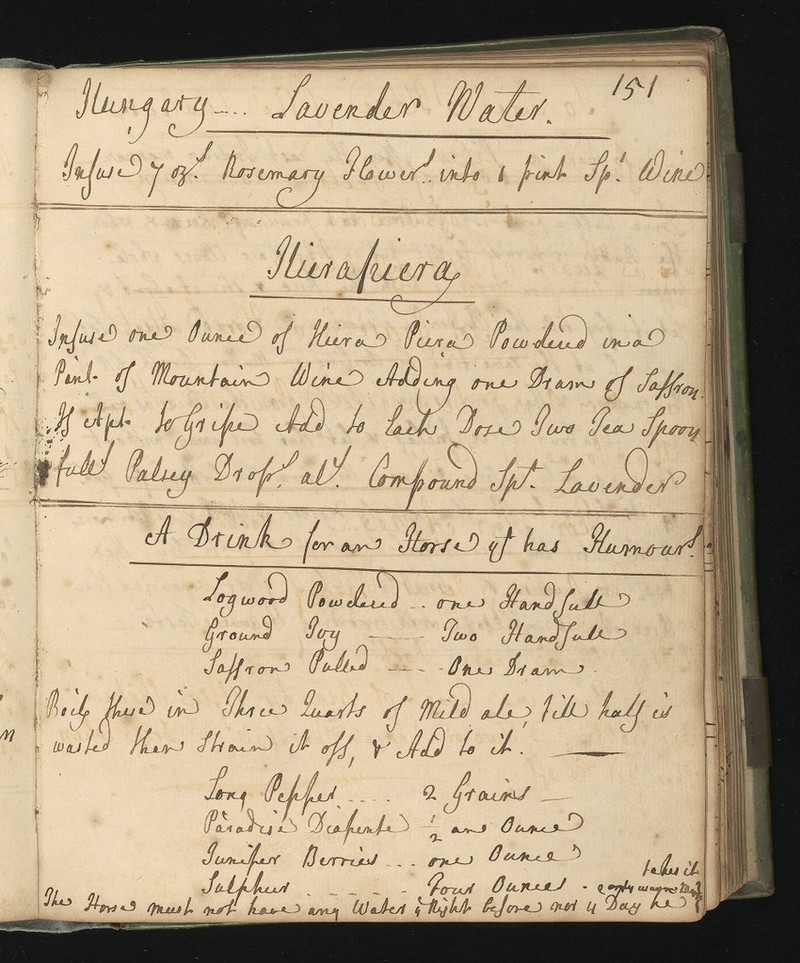 151
Hungary .... Lavender Water.
Infuse 7 ozs. Rosemary Flowers. into 1 pint Spt. Wine
Hierapiera
Infuse one Ounce of Hiera Piera Powdered in a
Pint of Mountain Wine Adding one Dram of Saffron.
If Apt to Gripe Add to Each Dose Two Tea Spoon
fulls Palsey Drops. als. Compound Spt. Lavender
A Drink for an Horse yt has Humours.
Logwood Powdered .. one Handfull
Ground Ivy —— Two Handfull
Saffron Pulled —— One Dram
Boil these in Three Quarts of Mild ale, till half is
wasted then Strain it off, & Add to it. ——
Long Pepper .... 2 Grains —
Paradise Diapente 1/2 an Ounce
Juniper Berries ... one Ounce
Sulphur ...... Four Ounces -
The Horse must not have any Water ye Night before nor ye Day he
takes it